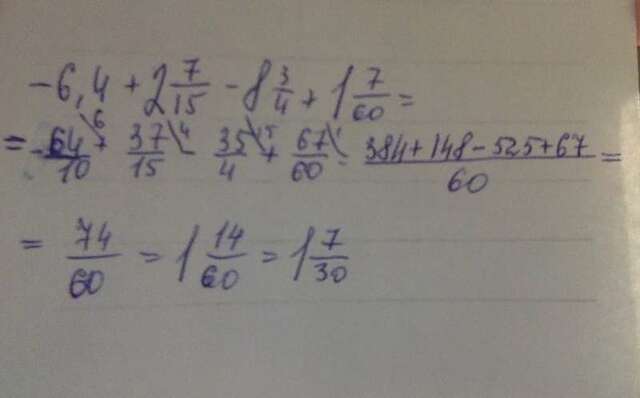 -6,4 + 2 7/15 - 8 3/4 + 1 7/60 =
= -64/10 \6 + 37/15 \4 - 35/4 \15 + 67/60 \1 = 384+148-525+67/60 =
= 74/60 = 1 14/60 = 1 7/30